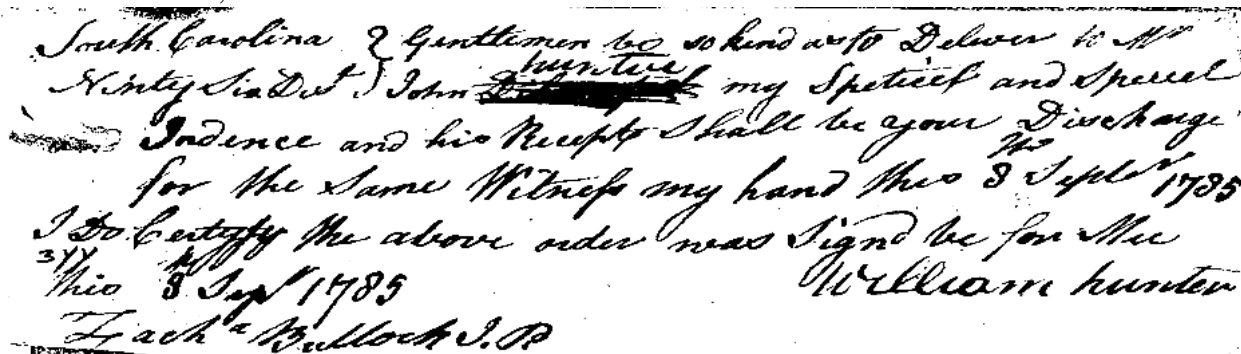 South Carolina } Gentlemen be so kind as to Deliver to Mr
Ninty Six Dist } John hunter my Speticl and Speecel
Indence and his Recept Shall be your Discharge
for the Same Witness my hand this 8th Septr 1785
I Do Certyfy the above order was Signd be for Mee
3yy
this 8th Sepr 1785 William hunter
Zacha Bullock J. P.